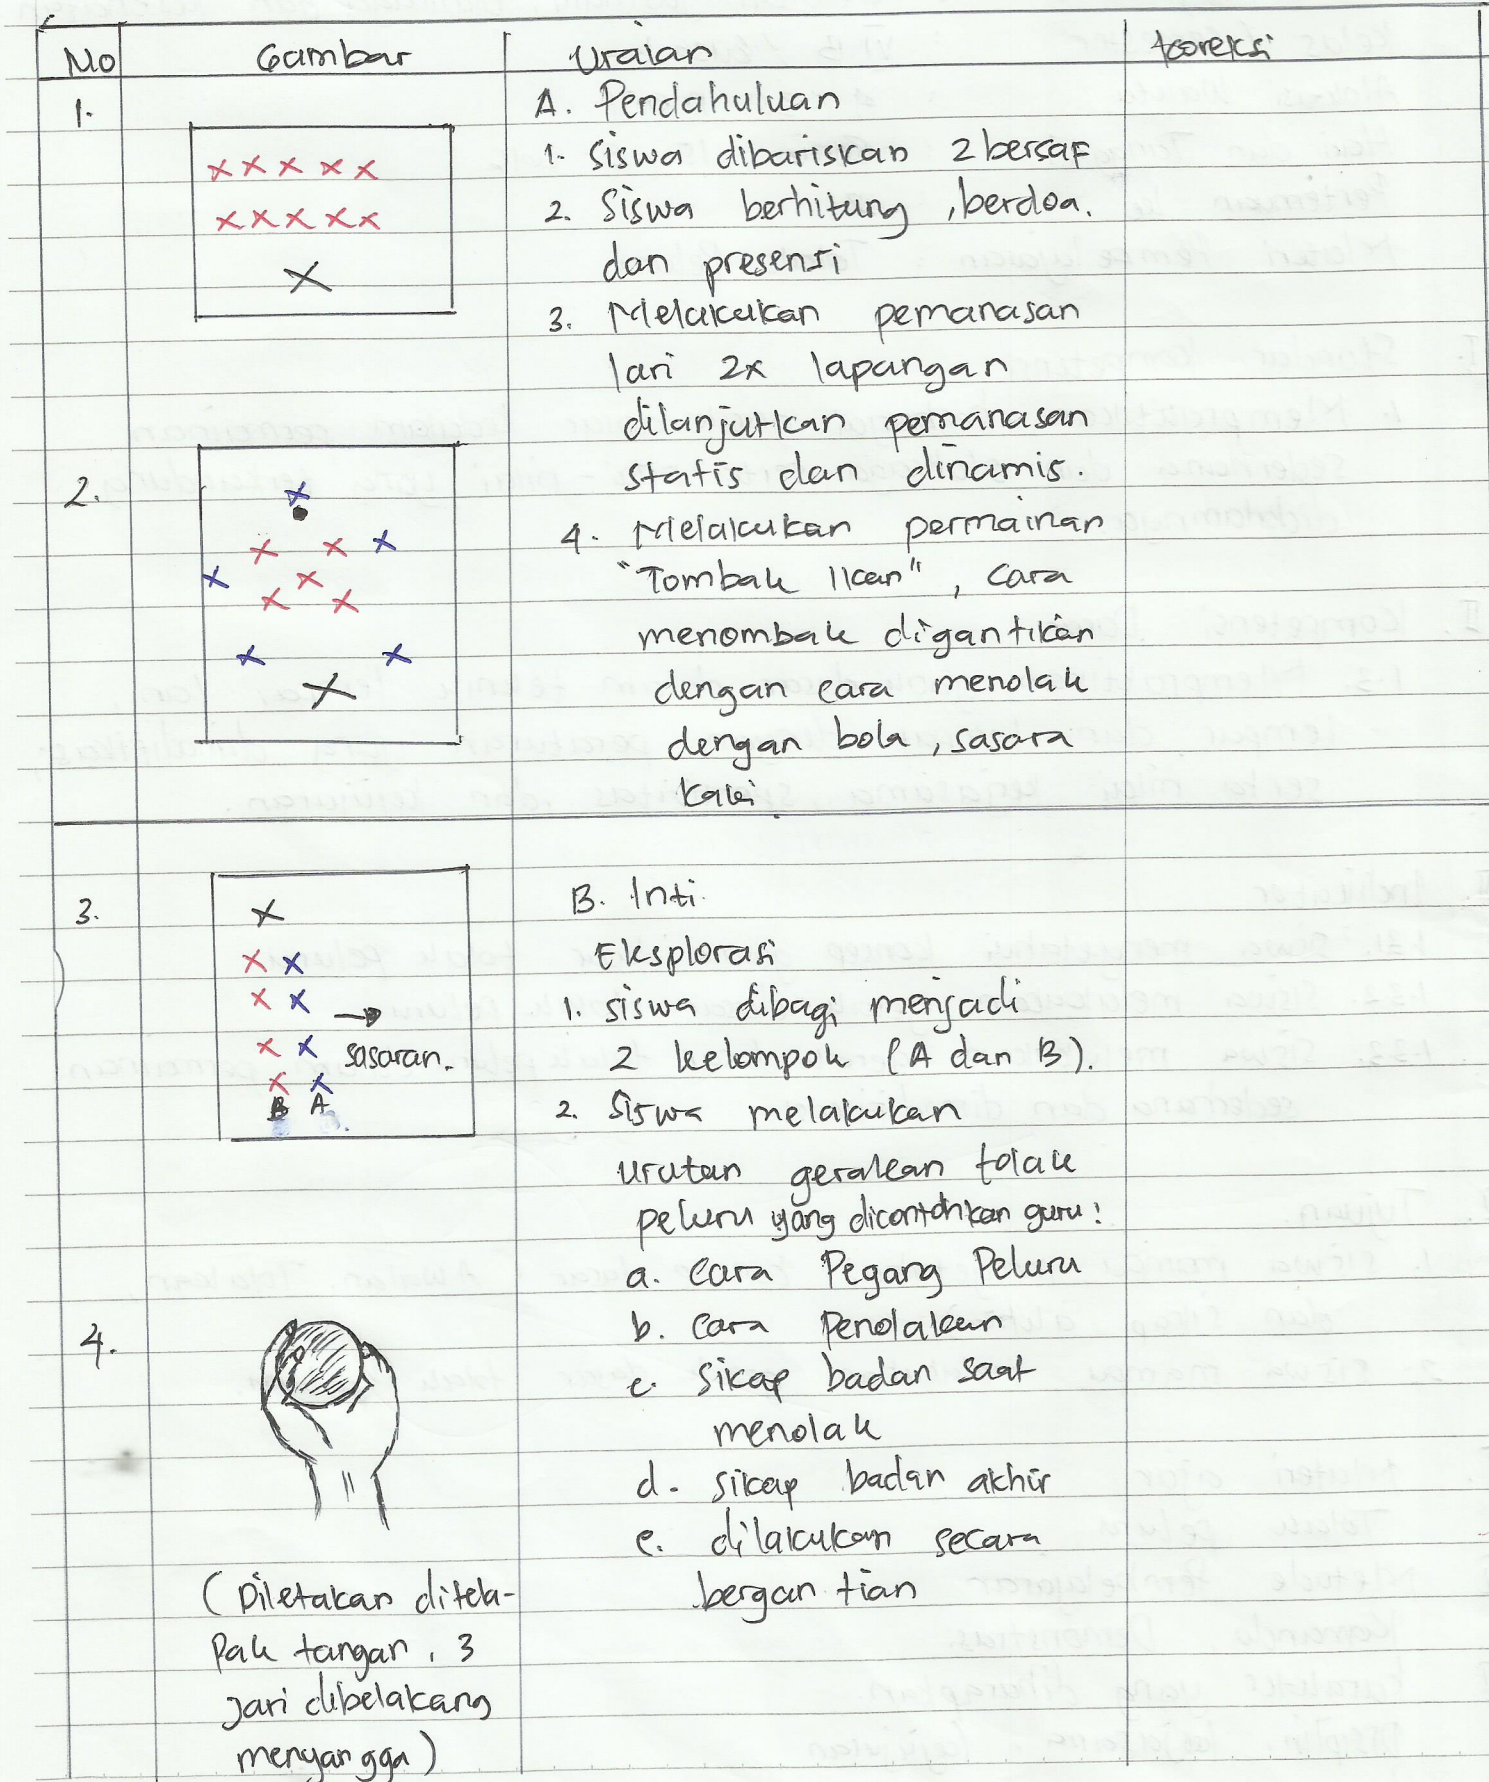 No Gambar Uraian Koreksi
1.
A. Pendahuluan
1. Siswa dibariskan 2 bersaf
2. Siswa berhitung, berdoa.
dan presensi
3. Melakukan pemanasan
lari 2x lapangan
dilanjutkan pemanasan
statis dan dinamis.
2.
4. Melakukan permainan
"Tombak Ikan", cara
menombak digantikan
dengan cara menolak
dengan bola, sasara
kaki
3.
sasaran.
B A
B. Inti.
Eksplorasi
1. siswa dibagi menjadi
2 kelompok (A dan B).
2. Siswa melakukan
urutan gerakan tolak
peluru yang dicontohkan guru:
a. Cara Pegang Peluru
b. Cara Penolakan
c. Sikap badan saat
menolak
d. sikap badan akhir
e. dilakukan secara
bergantian
4.
(Diletakan ditela-
pak tangan, 3
jari dibelakang
menyangga)